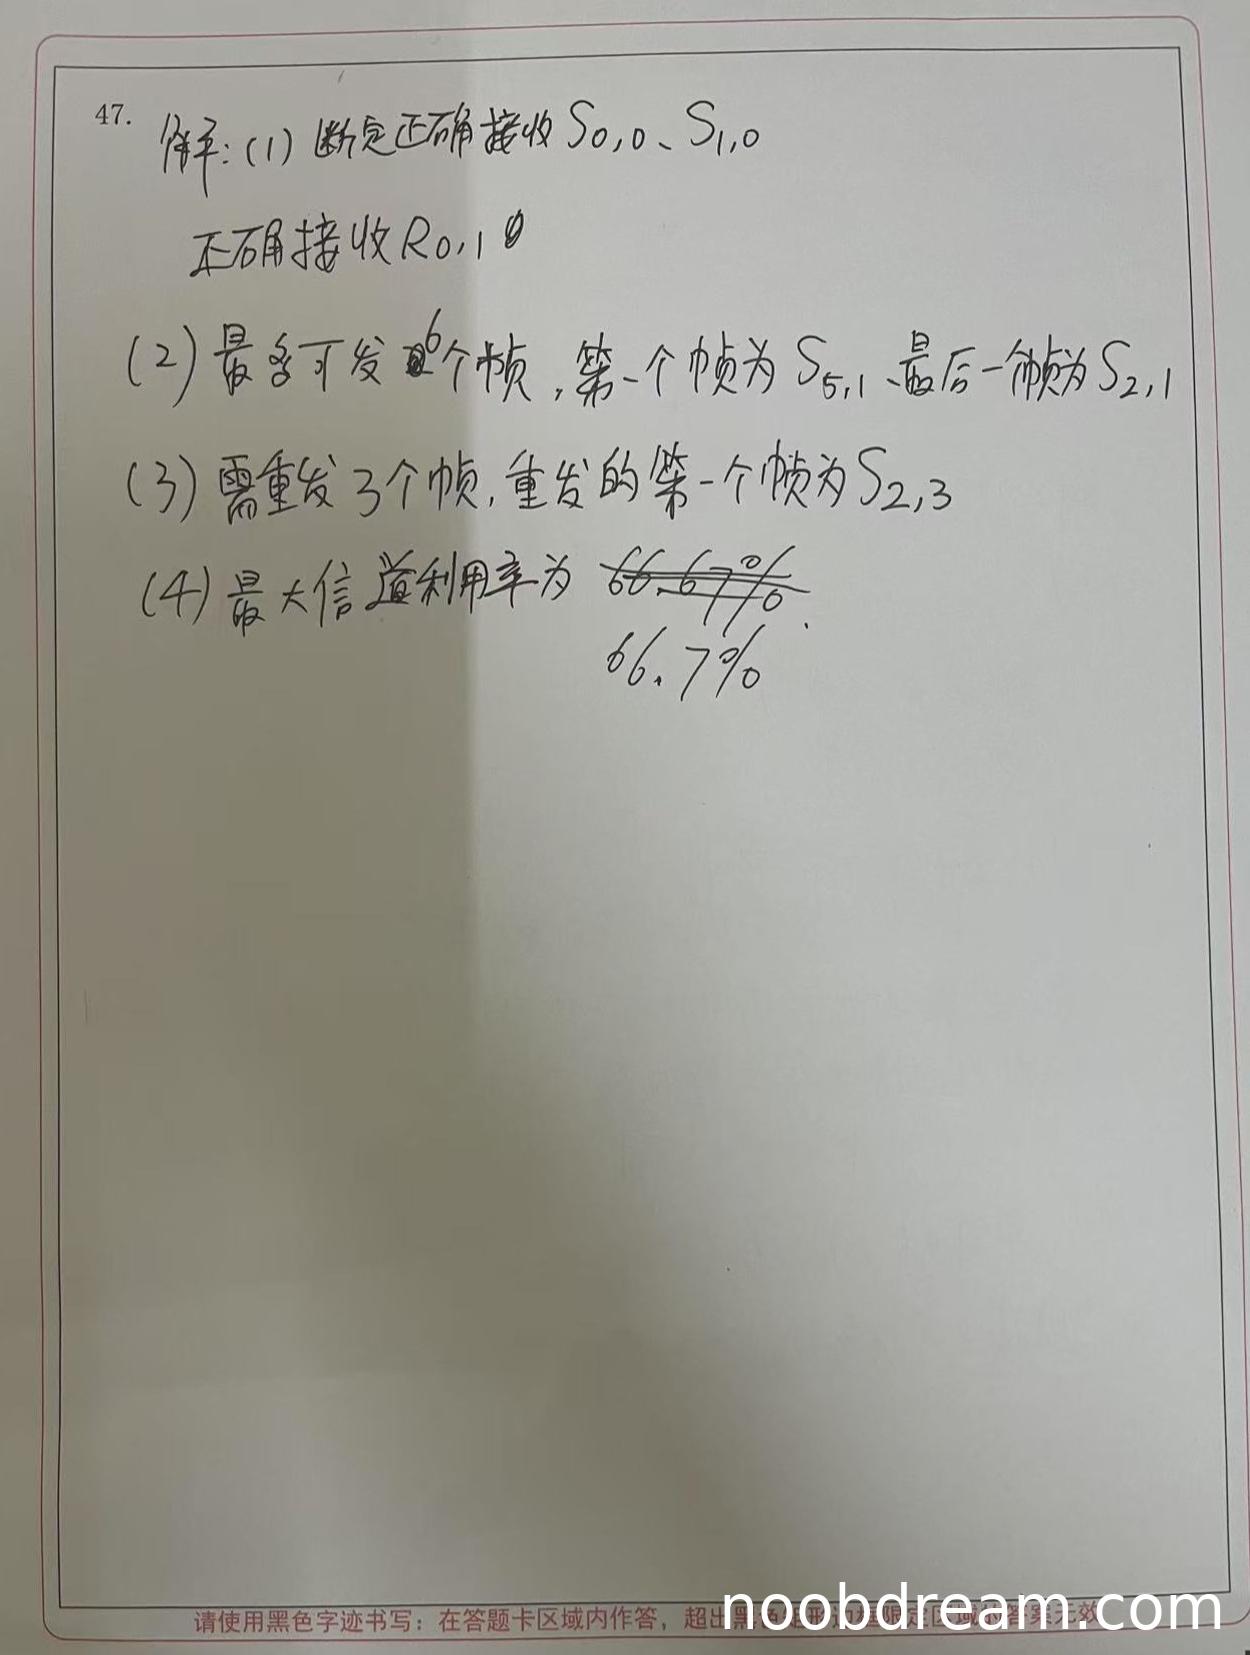 47.
解:(1)断定正确接收S0,0、S1,0
正确接收R0,1
(2)最多可发6个帧,第一个帧为S5,1、最后一个帧为S2,1
(3)需重发3个帧,重发的第一个帧为S2,3
(4)最大信道利用率为 66.67%.
66.7%
请使用黑色字迹书写:在答题卡区域内作答,超出黑色矩形边框限定区域的答案无效
noobdream.com